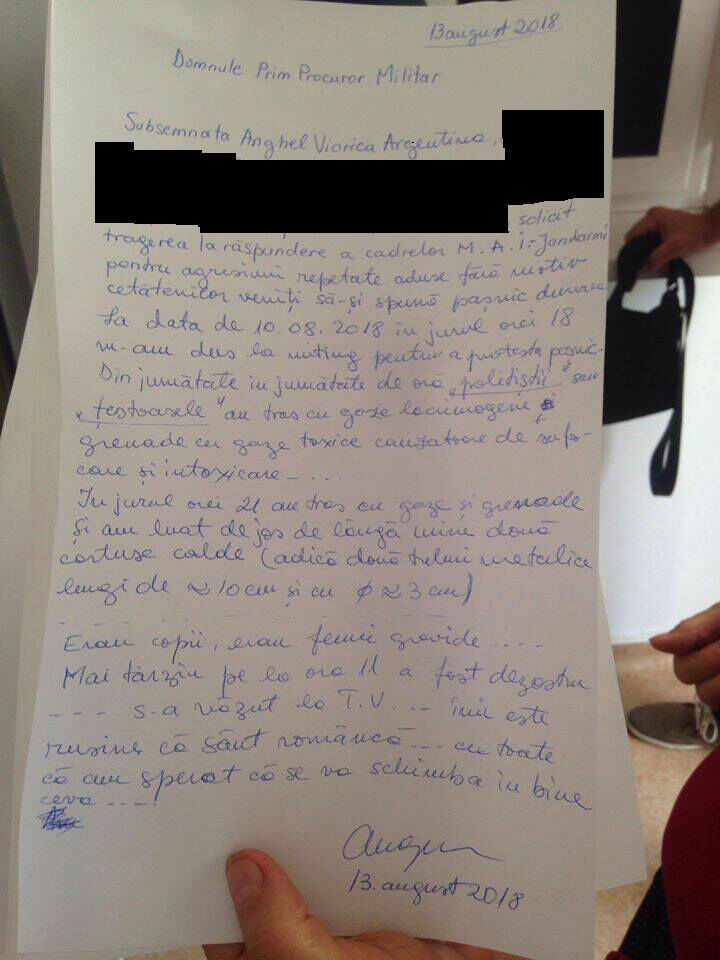 13 august 2018
Domnule Prim Procuror Militar
Subsemnata Anghel Viorica Argentina,
solicit
tragerea la răspundere a cadrelor M.A.I.-Jandarmi
pentru agresiuni repetate aduse fără motiv
cetățenilor veniți să-și spună pașnic durerea
La data de 10.08.2018 în jurul orei 18
m-am dus la miting pentru a protesta pașnic.
Din jumătate in jumătate de oră „polițiștii” sau
„țestoasele” au tras cu gaze lacrimogene și
grenade cu gaze toxice cauzatoare de sufo-
care și intoxicare - . . . .
In jurul orei 21 au tras cu gaze și grenade
și am luat de jos de lângă mine două
cartușe calde (adică două tuburi metalice
lungi de ≈ 10 cm și cu φ ≈ 3 cm)
Erau copii, erau femei gravide . . . .
Mai târziu pe la ora 11 a fost dezastru
- - - - s-a văzut la T.V. ... îmi este
rușine că sânt româncă ... cu toate
că am sperat că se va schimba in bine
ceva ....!
13. august 2018